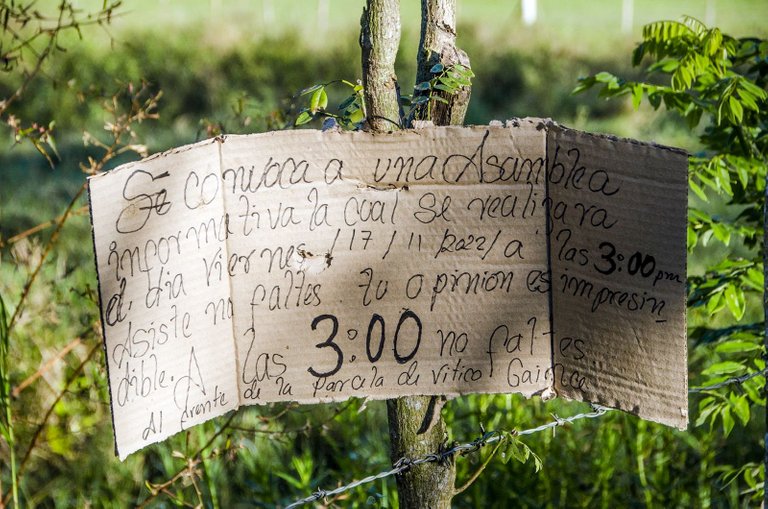 Se convoca a una Asamblea
informativa la cual se realizara
el dia viernes /17/11/2022/ a las 3:00 pm
Asiste no faltes tu opinion es impresin
dible. A las 3:00 no faltes
al frente de la Parcela de Vitico